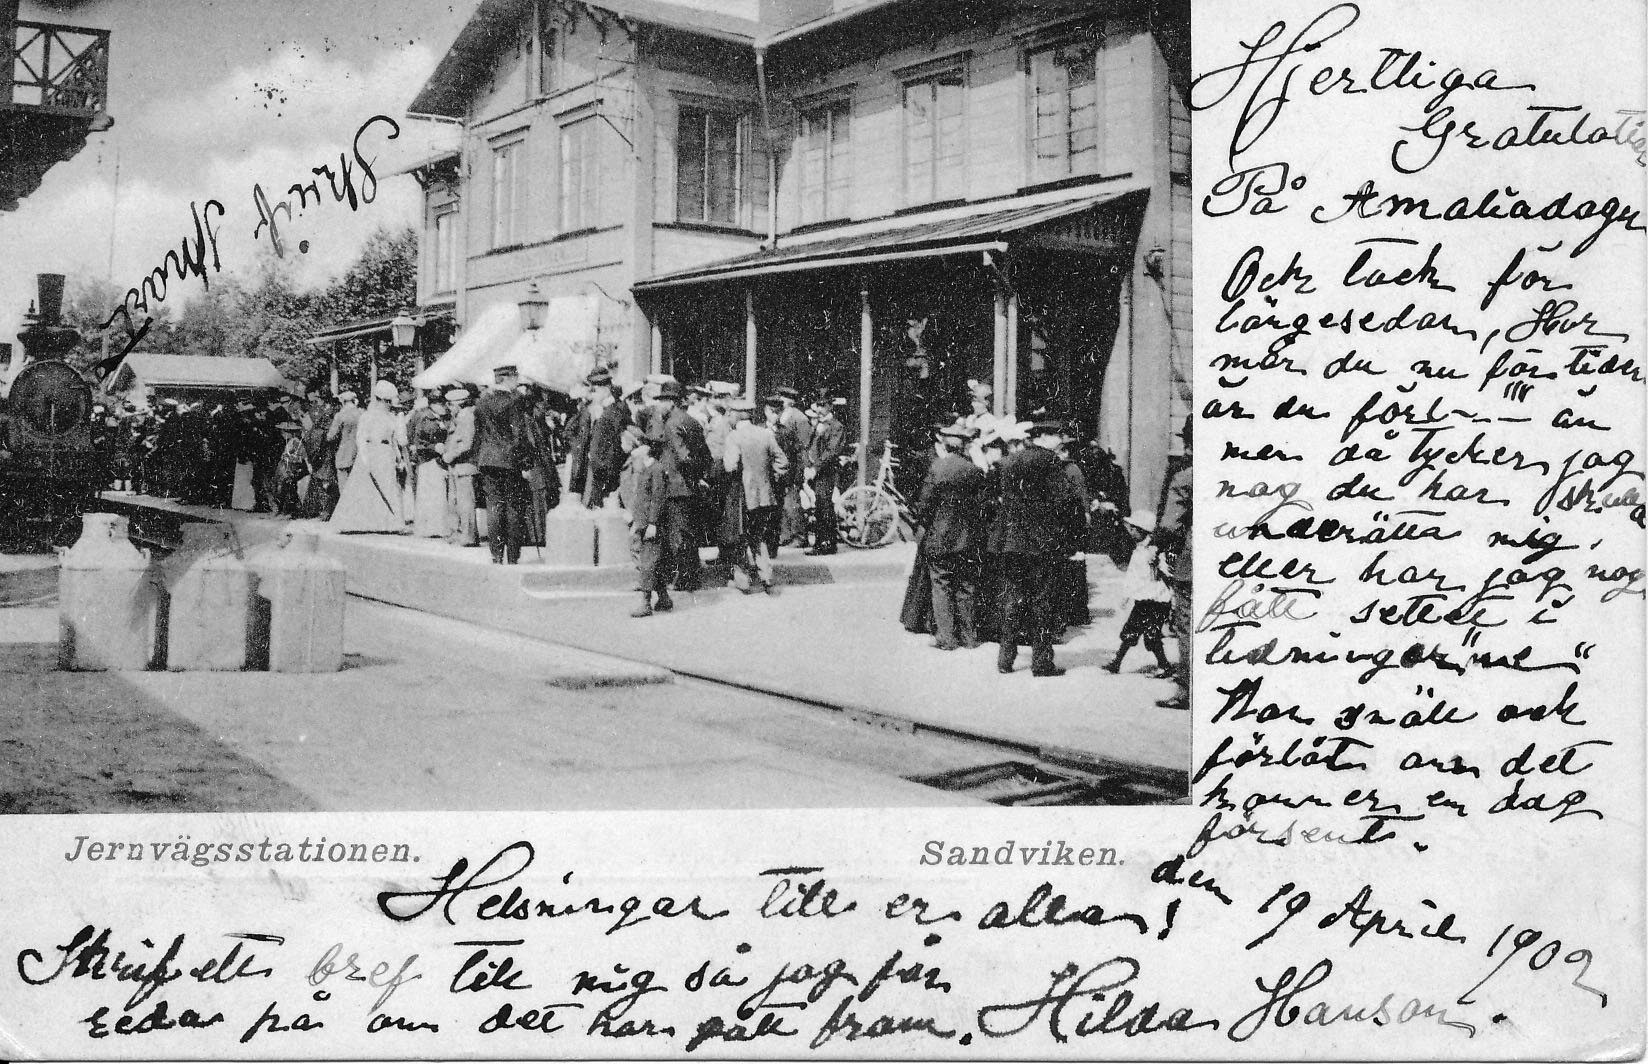 Hjertliga
Gratulation
På Amaliadagen
Och tack för
längesedan, Hur
mår du nu för tiden
är du förl--- än
men då tycker jag
nog du har
underätta mig.
eller har jag nog
fått settet i
tidningar "ne"
Var snäll och
förlåt om det
kommer en dag
försent.
Skrif snart
Jernvägsstationen.
Sandviken.
Helsningar till er alla!
den 19 April 1902
Skrif ett bref till mig så jag får
reda på om det har gått fram.
Hilda Hanson.